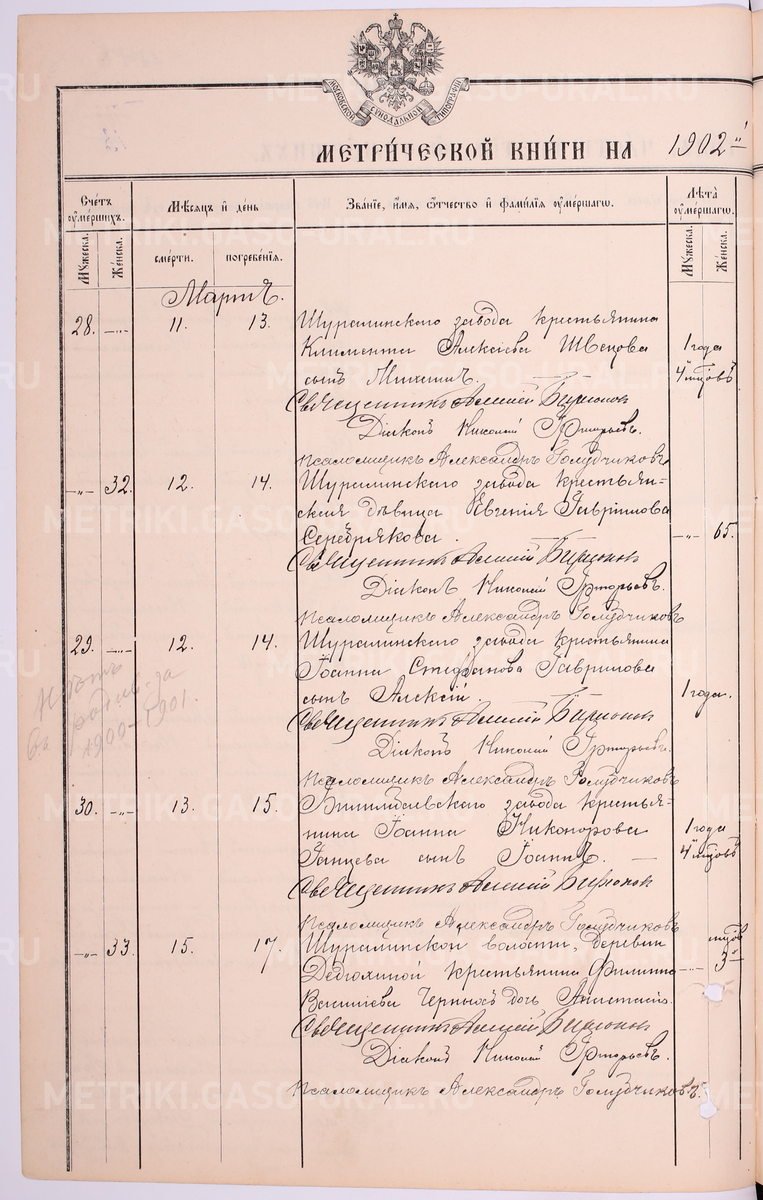 МОСКОВСКОЙ СѴНОДАЛЬНОЙ ТИПОГРАФІИ
МЕТРИЧЕСКОЙ КНИГИ НА 1902
Счетъ оумершихъ. Мѣсяцъ и день Званіе, имя, отчество и фамилія оумершаго. Лѣта оумершаго.
Мужеска. Женска. смерти. погребенія. Мужеска. Женска.
Мартъ.
28. -"- 11. 13. Шуралинскаго завода крестьянина
Климента Алексіева Швецова 1 года
сынъ 4 мцовъ
Священникъ Алексій Бирюков
Діаконъ Николай Григорьевъ.
Псаломщикъ Александръ Голубчиковъ
-"- 32. 12. 14. Шуралинскаго завода крестьян-
ская дѣвица Евгенія Гавріилова
Серебрякова. -"- 65.
Священникъ Алексій Бирюков
Діаконъ Николай Григорьевъ.
Псаломщикъ Александръ Голубчиковъ
29. -"- 12. 14. Шуралинскаго завода крестьянина
Іоанна Стефанова Гаврилова
сынъ Алексій. 1 года.
Нѣтъ
въ родив. за
1900-1901.
Священникъ Алексій Бирюков
Діаконъ Николай Григорьевъ.
Псаломщикъ Александръ Голубчиковъ
30. -"- 13. 15. Билимбаевскаго завода крестья-
нина Іоанна Никонорова 1 года
Ганцева сынъ Іоаннъ. 4 мцовъ
Священникъ Алексій Бирюков
Псаломщикъ Александръ Голубчиковъ
-"- 33. 15. 17. Шуралинской волости, деревни мцов
крестьянина Филиппа -"- 3
Василіева Черныхъ дочь Анастасія.
Священникъ Алексій Бирюков
Діаконъ Николай Григорьевъ.
Псаломщикъ Александръ Голубчиковъ.
METRIKI.GASO-URAL.RU